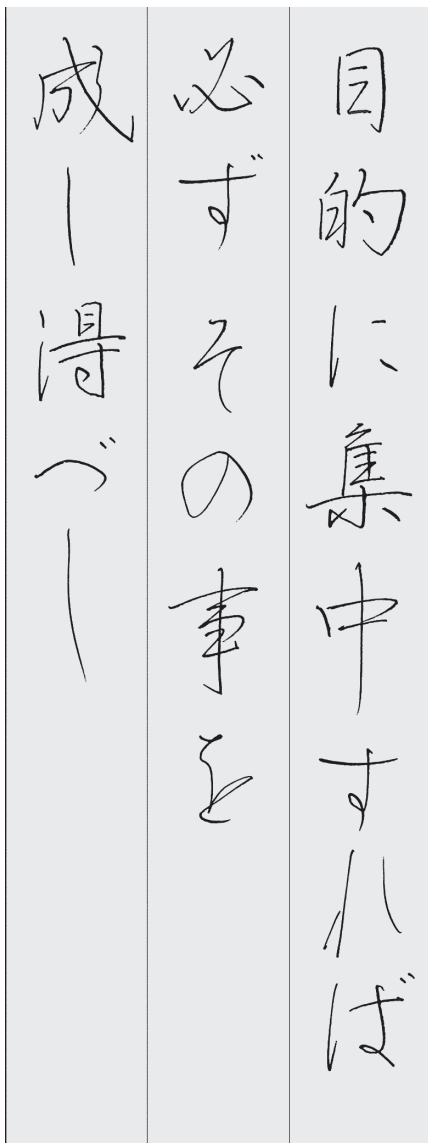 目的に集中すれば
必ずその事を
成し得べし